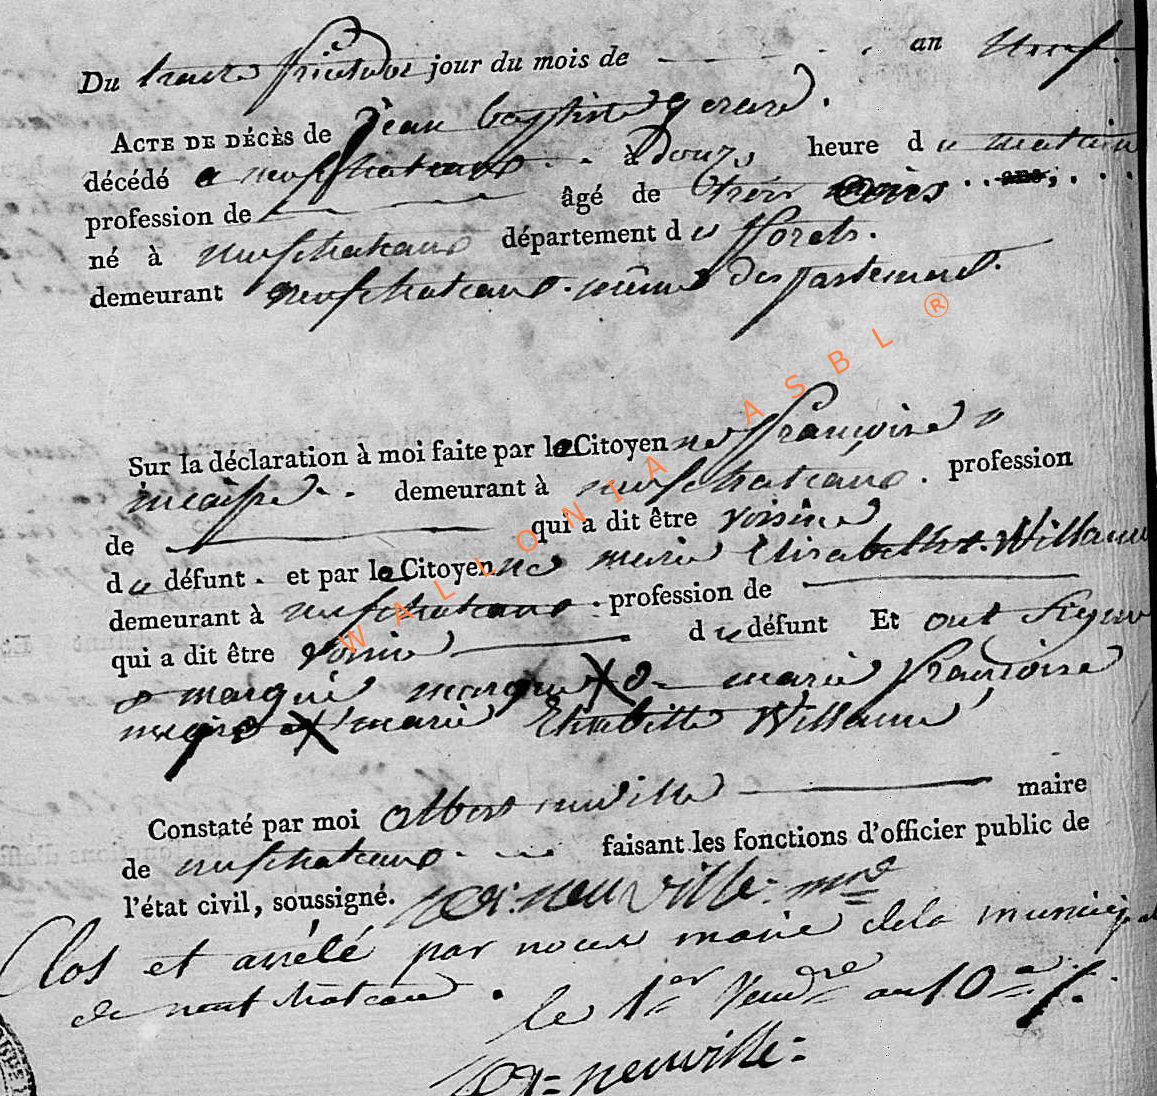 Du treize fructidor jour du mois de an neuf.
ACTE DE DÉCÈS de jean baptiste gerard.
décédé a neufchateau à Douze heure du matin
profession de âgé de trois mois ans,
né à neufchateau département des fforets.
demeurant neufchateau. même departement.
Sur la déclaration à moi faite par la Citoyenne ffrançoise
demeurant à neufchateau. profession
de qui a dit être voisine
du défunt. et par la Citoyenne marie Elisabethe Willaume
demeurant à neufchateau. profession de
qui a dit être voisine du défunt Et ont signe
marqué marque X marie françoise
X marie Elisabette Willaume
Constaté par moi albert neuville maire
de neufchateau faisant les fonctions d'officier public de
l'état civil, soussigné. neuville: mre
Clos et arrêté par nous maire de la municipal
de neufchateau. le 1er Vendre an 10e f.
neuville
WALLONIA ASBL ®